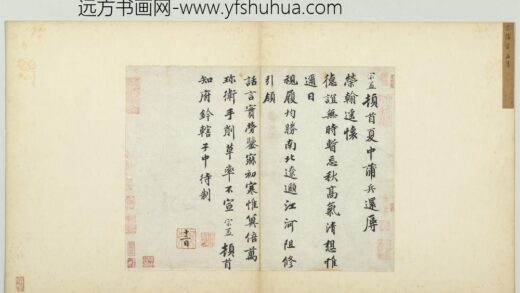 远方书画网-www.yfshuhua.com
頓首夏中蒲兵還辱
榮翰遠懷
德誼無時暫忘秋高氣清想惟
邇日
視履均勝南北遼邈江河阻修
引領
話言實勞鑒寐初寒惟冀倍萬
珎衛手削草率不宣 頓首
知府鈐轄子中待制
十二日